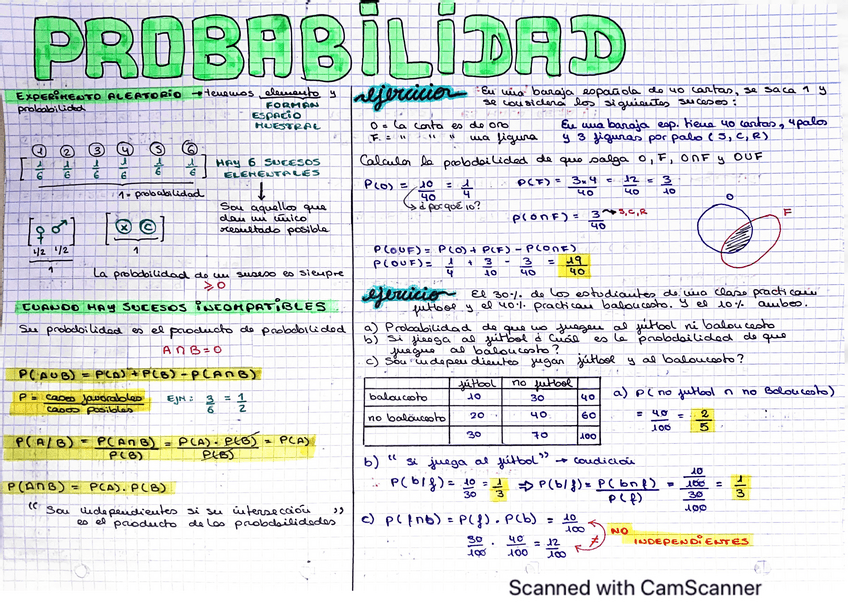 PROBABILIDAD
EXPERIMENTO ALEATORIO → tenemos elemento y
probabilidad
FORMAN
ESPACIO
MUESTRAL
1 2 3 4 5 6
[ 1/6 1/6 1/6 1/6 1/6 1/6 ]
1 = probabilidad
HAY 6 SUCESOS
ELEMENTALES
Son aquellos que
dan un único
resultado posible
[ ♀ ♂ ] [ X C ]
1/2 1/2
1 1
La probabilidad de un suceso es siempre
≥ 0
CUANDO HAY SUCESOS INCOMPATIBLES
Su probabilidad es el producto de probabilidad
A∩B=0
P(A∪B) = P(A) + P(B) - P(A∩B)
P = casos favorables / casos posibles EJM: 3/6 = 1/2
P(A/B) = P(A∩B)/P(B) = P(A) · P(B)/P(B) = P(A)
P(A∩B) = P(A) . P(B)
"Son independientes si su intersección
es el producto de las probabilidades"
ejercicio En una baraja española de 40 cartas, se saca 1 y
se considera los siguientes sucesos:
O = La carta es de oro En una baraja esp. tiene 40 cartas, 4 palos
F = " " " una figura y 3 figuras por palo (S, C, R)
Calcular la probabilidad de que salga O, F, O∩F y O∪F
P(O) = 10/40 = 1/4 P(F) = 3·4/40 = 12/40 = 3/10
¿por qué 10?
P(O∩F) = 3/40 → S, C, R
O
F
P(O∪F) = P(O) + P(F) - P(O∩F)
P(O∪F) = 1/4 + 3/10 - 3/40 = 19/40
ejercicio El 30% de los estudiantes de una clase practican
fútbol y el 40% practican baloncesto. Y el 10% ambos.
a) Probabilidad de que no jueguen al fútbol ni baloncesto
b) Si juega al fútbol ¿Cuál es la probabilidad de que
juegue al baloncesto?
c) Son independientes jugar fútbol y al baloncesto?
fútbol no futbol
baloncesto 10 30 40
no baloncesto 20 40 60
30 70 100
a) P(no futbol ∩ no Baloncesto)
= 40/100 = 2/5
b) "Si juega al fútbol" → condición
P(b/f) = 10/30 = 1/3 ⇒ P(b/f) = P(b∩f)/P(f) = 10/100 / 30/100 = 1/3
c) P(f∩b) = P(f) · P(b) = 10/100
30/100 · 40/100 = 12/100
≠
NO
INDEPENDIENTES
Scanned with CamScanner